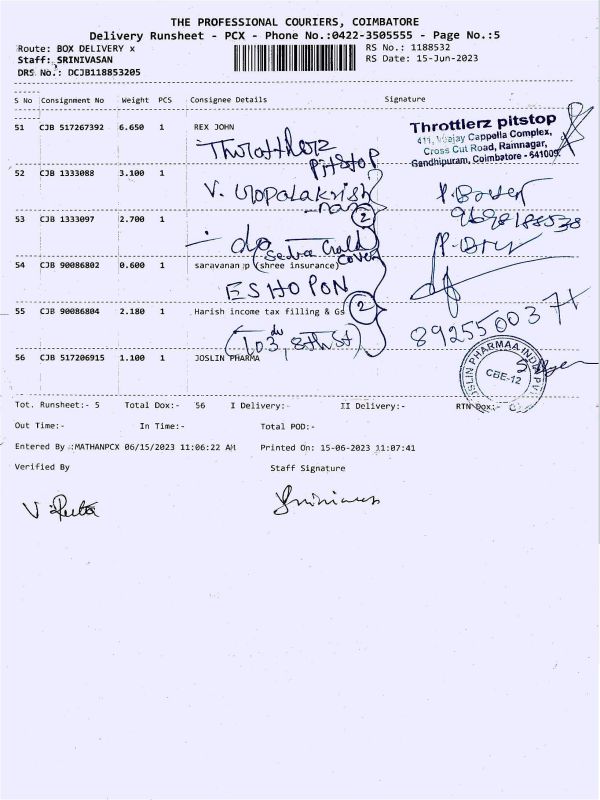 THE PROFESSIONAL COURIERS, COIMBATORE
Delivery Runsheet - PCX - Phone No.:0422-3505555 - Page No.:5
Route: BOX DELIVERY x RS No.: 1188532
Staff: SRINIVASAN RS Date: 15-Jun-2023
DRS No.: DCJB118853205
S No Consignment No Weight PCS Consignee Details Signature
51 CJB 517267392 6.650 1 REX JOHN
Throttlerz pitstop
Cappella Complex,
Cross Cut Road, Ramnagar,
Gandhipuram, Coimbatore - 641009.
Throttlerz
PitStop
52 CJB 1333088 3.100 1
V. Gopalakrish
nan
2
53 CJB 1333097 2.700 1
9698188538
- do
54 CJB 90086802 0.600 1 saravanan p (shree insurance)
ESHOPON
55 CJB 90086804 2.180 1 Harish income tax filling & Gs
2
(103, 8th St)
56 CJB 517206915 1.100 1 JOSLIN PHARMA
CBE-12
Tot. Runsheet:- 5 Total Dox:- 56 I Delivery:- II Delivery:- RTN Dox:-
Out Time:- In Time:- Total POD:-
Entered By :MATHANPCX 06/15/2023 11:06:22 AM Printed On: 15-06-2023 11:07:41
Verified By Staff Signature